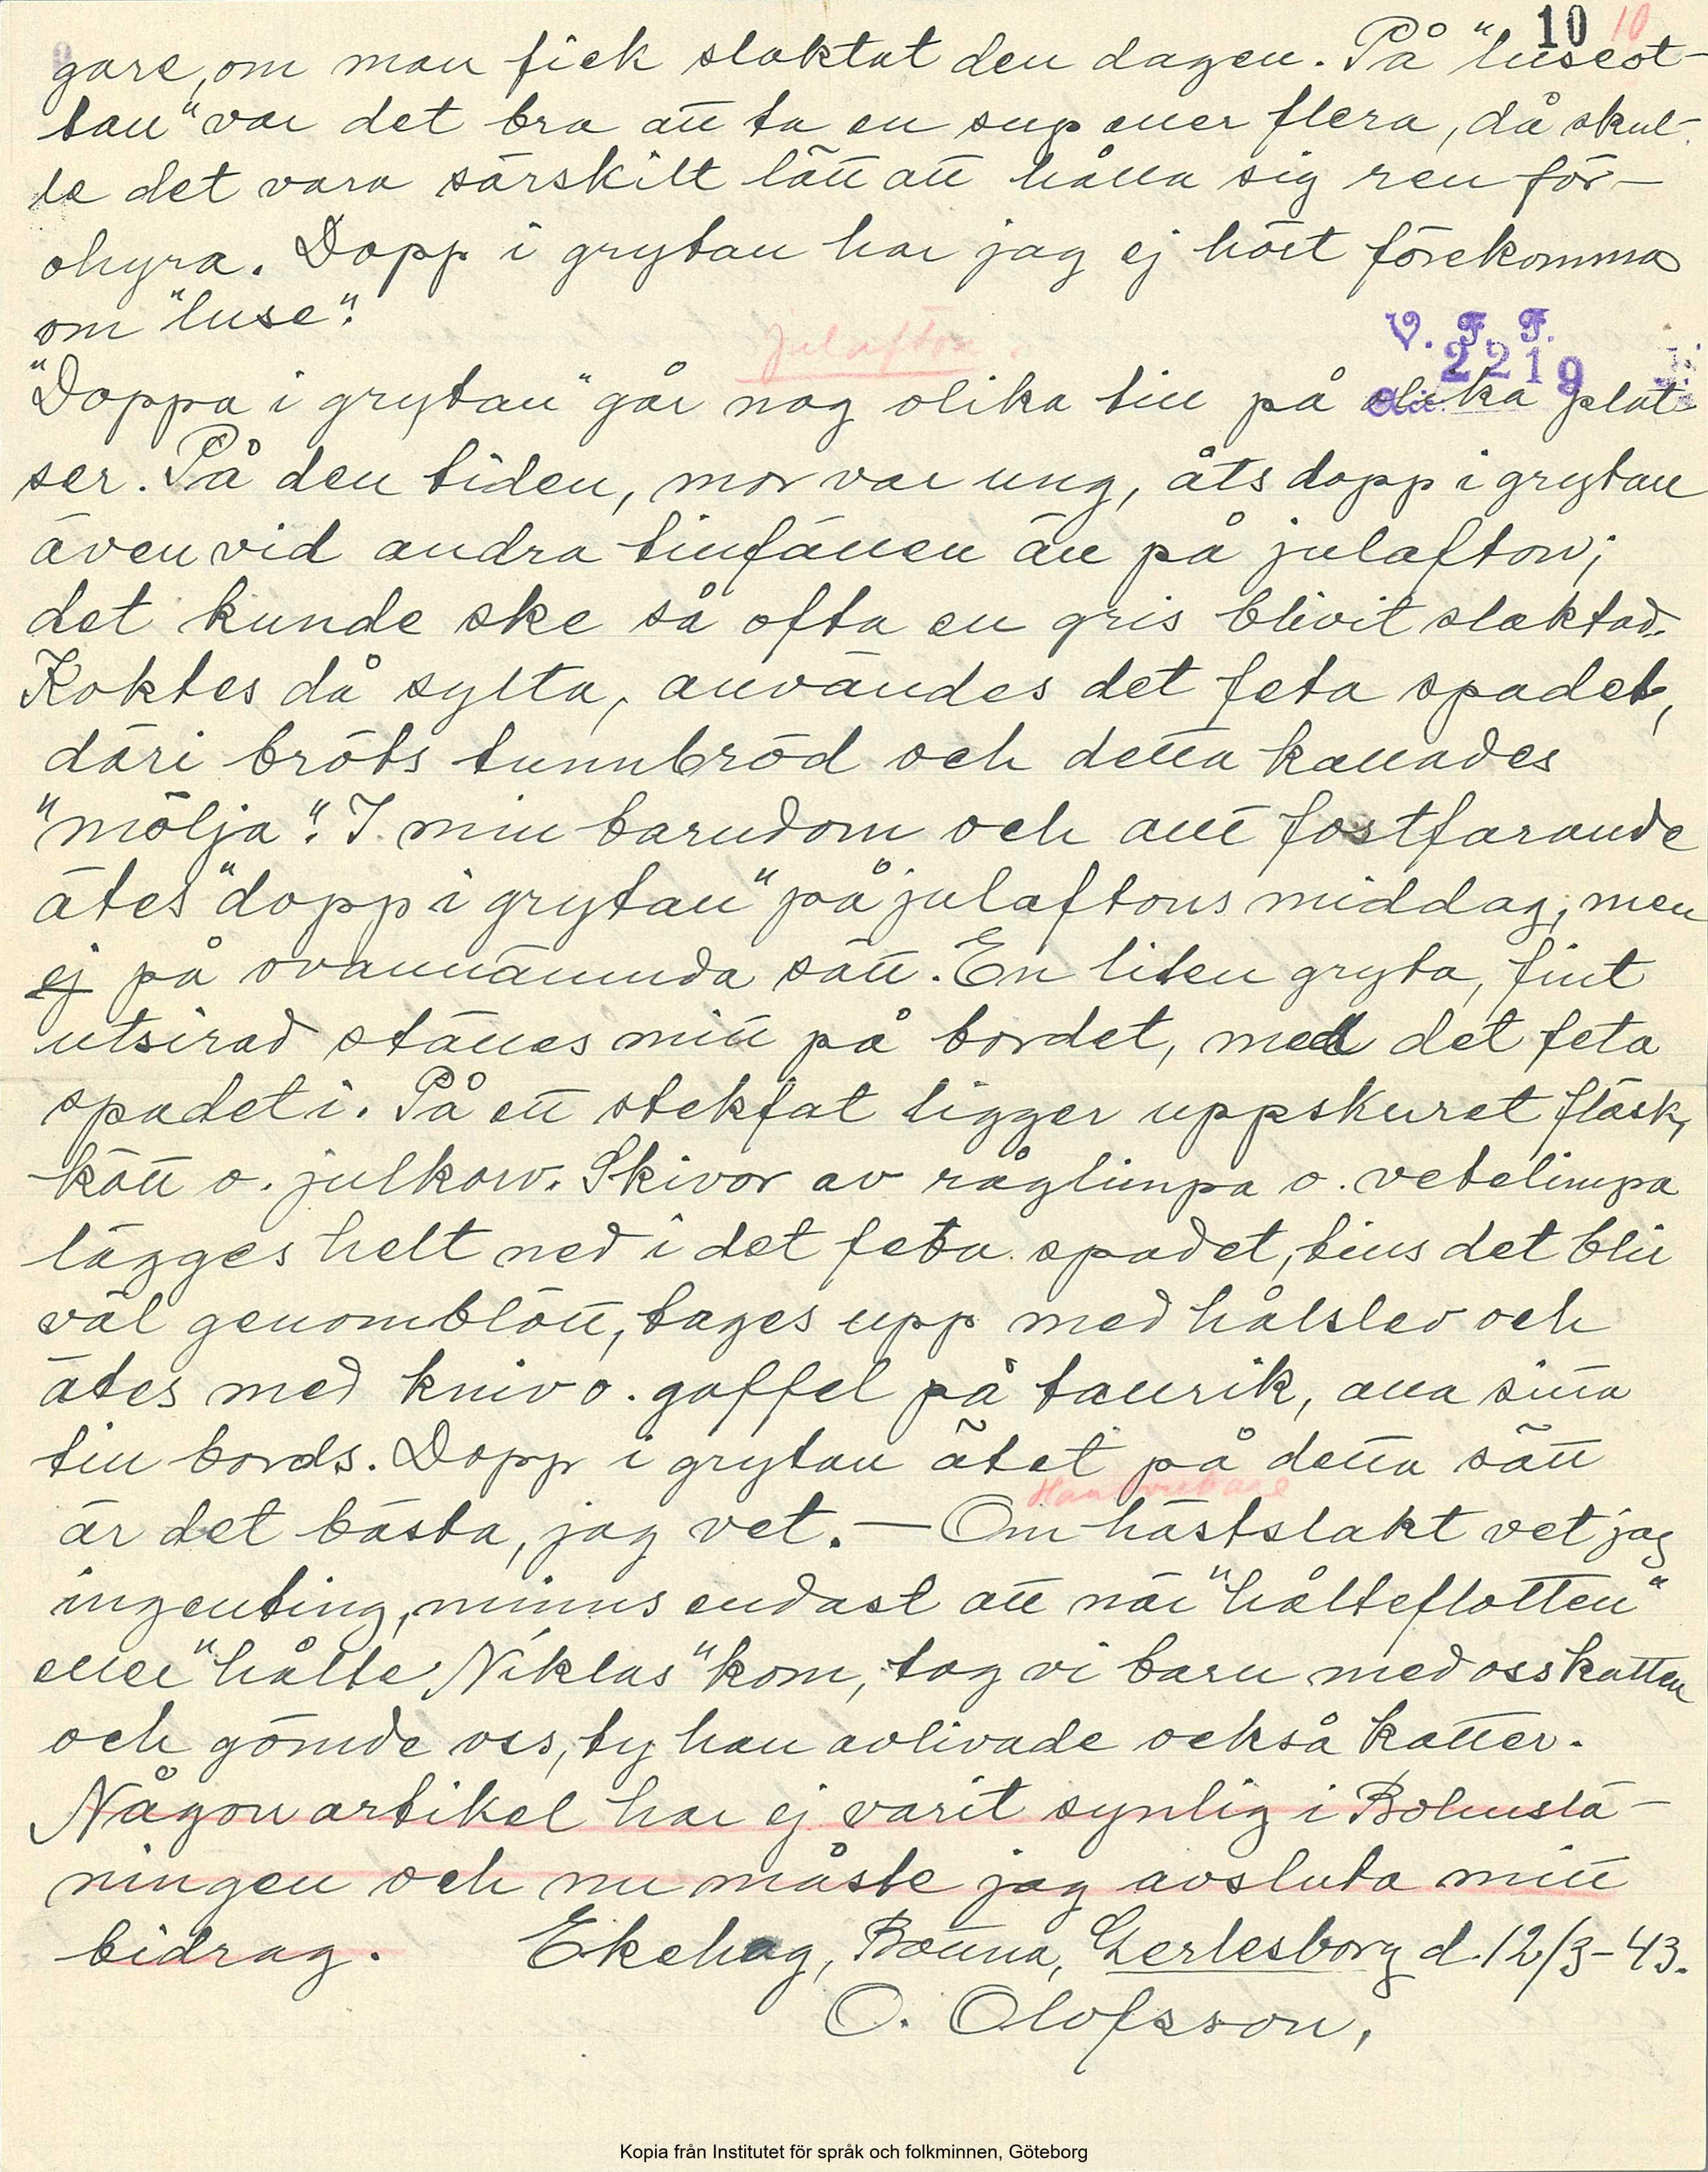 10 10
gare, om man fick slaktat den dagen. På "luseot-
tan" var det bra att ta en sup eller flera, då skul-
le det vara särskilt lätt att hålla sig ren för
ohyra. Dopp i grytan har jag ej hört förekomma
om "luse".
julafton.
V. F. F.
2219
"Doppa i grytan" går nog olika till på olika plat-
ser. På den tiden, mor var ung, åts dopp i grytan
även vid andra tillfällen än på julafton;
det kunde ske så ofta en gris blivit slaktad.
Koktes då sylta, användes det feta spadet,
däri bröts tunnbröd och detta kallades
"mölja". I min barndom och allt fostfarande
ätes "dopp i grytan" på julaftons middag, men
ej på ovannämnda sätt. En liten gryta, fint
utsirad ställes mitt på bordet, med det feta
spadet i. På ett stekfat ligger uppskuret fläsk,
kött o. julkorv. Skivor av råglimpa o. vetelimpa
lägges helt ned i det feta spadet, tills det blir
väl genomblött, tages upp med hålslev och
ätes med kniv o. gaffel på tallrik, alla sitta
till bords. Dopp i grytan ätet på detta sätt
är det bästa, jag vet. — Om hästslakt vet jag
ingenting, minns endast att när "hålteflotten"
eller "hålte Niklas" kom, tog vi barn med oss katten
och gömde oss, ty han avlivade också katter.
Någon artikel har ej varit synlig i Bohuslä-
ningen och nu måste jag avsluta mitt
bidrag. Ekehag, Bottna, Gerlesborg d. 12/3-43.
O. Olofsson,
Kopia från Institutet för språk och folkminnen, Göteborg